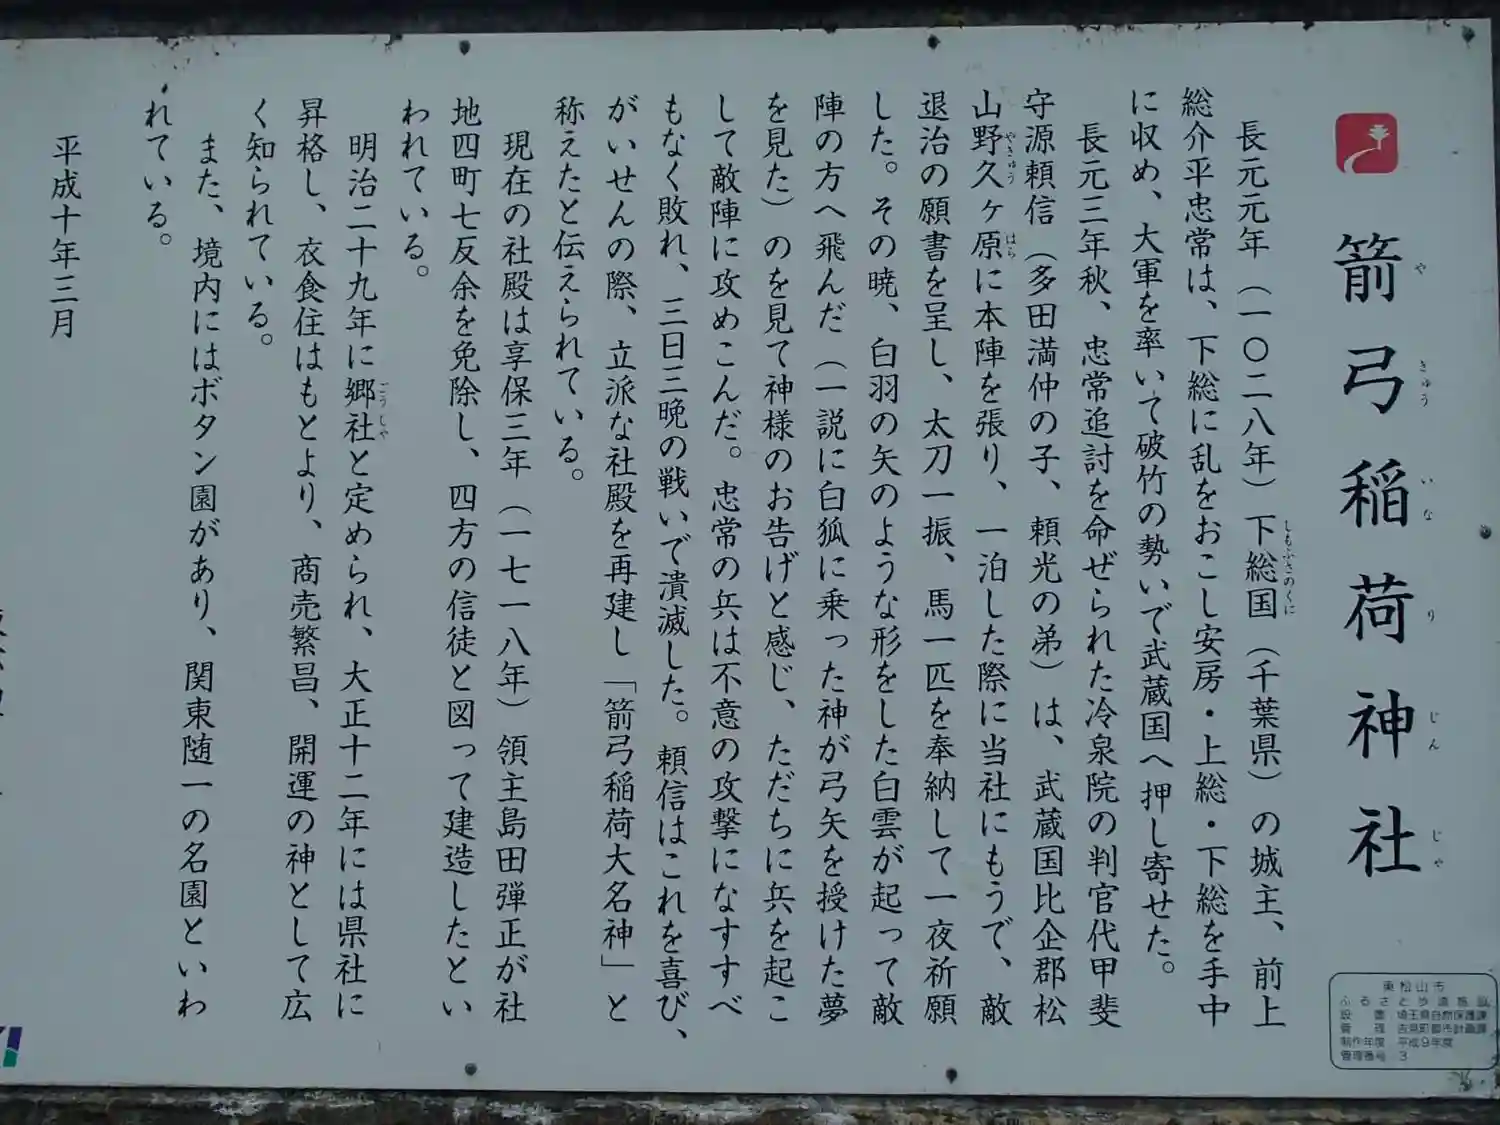 箭弓稲荷神社
やきゅういなりじんじゃ
長元元年（一〇二八年）下総国（千葉県）の城主、前上
しもふさのくに
総介平忠常は、下総に乱をおこし安房・上総・下総を手中
に収め、大軍を率いて破竹の勢いで武蔵国へ押し寄せた。
長元三年秋、忠常追討を命ぜられた冷泉院の判官代甲斐
守源頼信（多田満仲の子、頼光の弟）は、武蔵国比企郡松
山野久ヶ原に本陣を張り、一泊した際に当社にもうで、敵
やきゅう はら
退治の願書を呈し、太刀一振、馬一匹を奉納して一夜祈願
した。その暁、白羽の矢のような形をした白雲が起って敵
陣の方へ飛んだ（一説に白狐に乗った神が弓矢を授けた夢
を見た）のを見て神様のお告げと感じ、ただちに兵を起こ
して敵陣に攻めこんだ。忠常の兵は不意の攻撃になすすべ
もなく敗れ、三日三晩の戦いで潰滅した。頼信はこれを喜び、
がいせんの際、立派な社殿を再建し「箭弓稲荷大名神」と
称えたと伝えられている。
現在の社殿は享保三年（一七一八年）領主島田弾正が社
地四町七反余を免除し、四方の信徒と図って建造したとい
われている。
明治二十九年に郷社と定められ、大正十二年には県社に
ごうしゃ
昇格し、衣食住はもとより、商売繁昌、開運の神として広
く知られている。
また、境内にはボタン園があり、関東随一の名園といわ
れている。
平成十年三月
東松山市
ふるさと歩道施設
設置 埼玉県自然保護課
管理 吉見町都市計画課
制作年度 平成9年度
管理番号 3